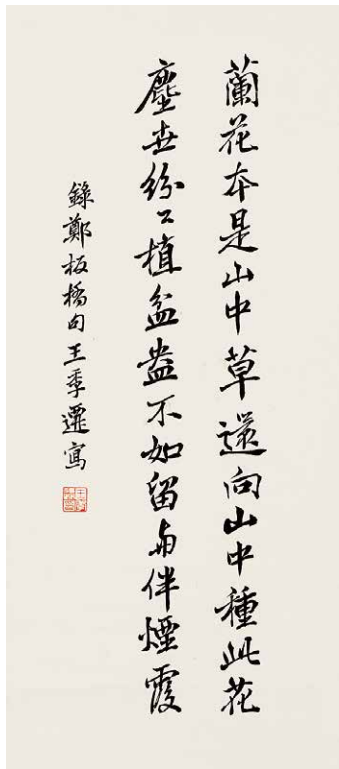 蘭花本是山中草還向山中種此花
塵世紛〻植盆盎不如留與伴煙霞
錄鄭板橋句王季遷寫